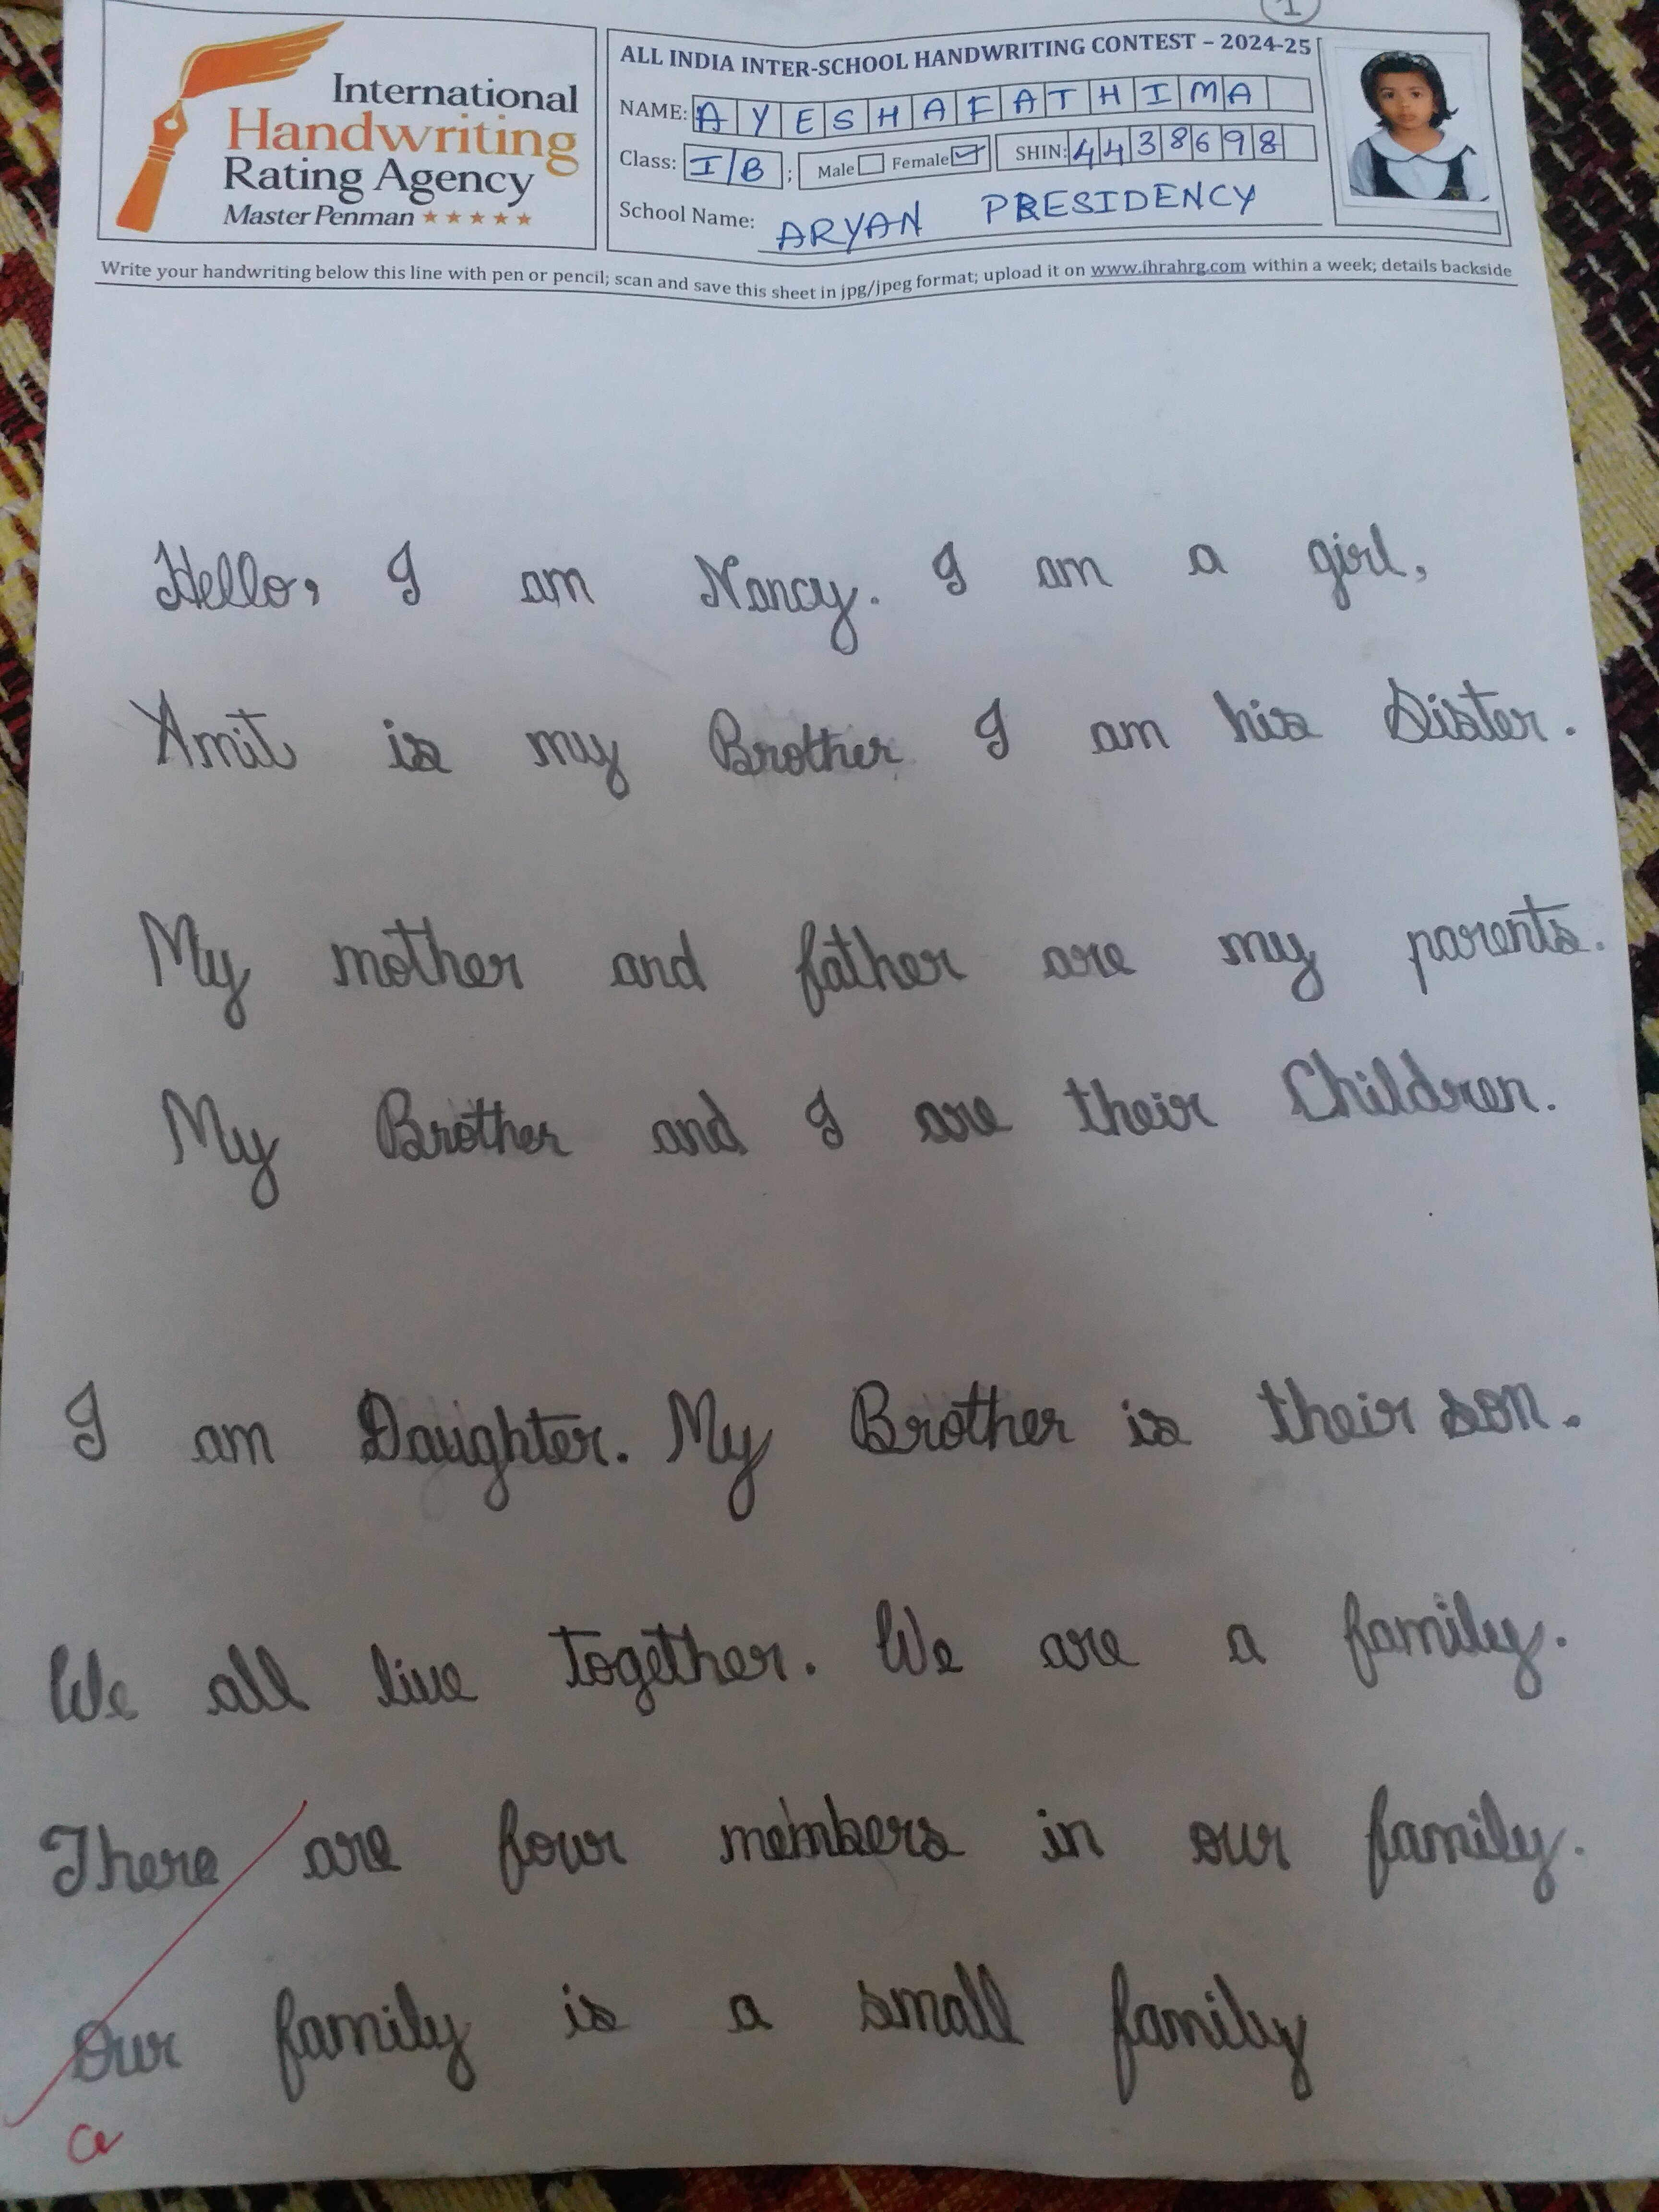 1
International
Handwriting
Rating Agency
Master Penman ★★★★★
ALL INDIA INTER-SCHOOL HANDWRITING CONTEST – 2024-25
NAME: AYESHA FATHIMA
Class: I/B ; Male Female ✓ SHIN: 4438698
School Name: ARYAN PRESIDENCY
Write your handwriting below this line with pen or pencil; scan and save this sheet in jpg/jpeg format; upload it on www.ihrahrg.com within a week; details backside
Hello, I am Nancy. I am a girl,
Amit is my Brother I am his Sister.
My mother and father are my parents.
My Brother and I are their Children.
I am Daughter. My Brother is their son.
We all live together. We are a family.
There are four members in our family.
Our family is a small family